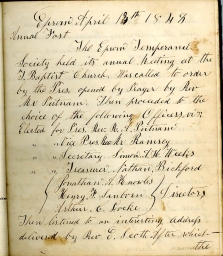 Epsom April 13th 1848
Annual Fast
The Epsom Temperance
Society held its annual Meeting at the
F. Baptist Church, Was called to order
by the Pres. opened by Prayer by Rev
Mr Putnam. Then proceeded to the
choice of the following Officers, viz;
Elected for Pres. Rev. R. A. Putnam
" " Vice Pres. Ramsey
" " Secretary Simon A. H. Weeks
" " Treasurer, Nathan Bickford
Jonathan Knowles
Henry F. Sanborn } Directors
Arthur C. Locke
Then listened to an interesting address
delivered by Rev E. Scott. After which
the